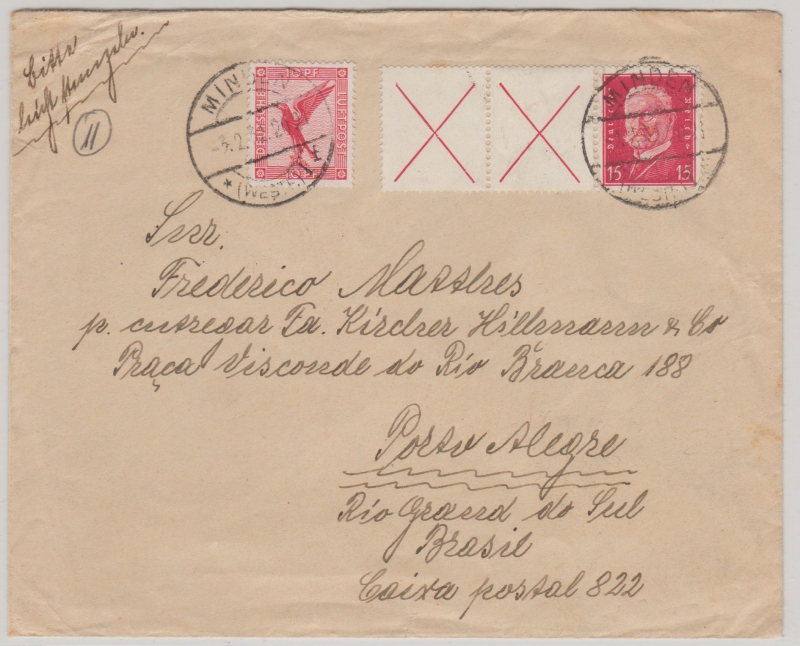 Bitte
leicht stempeln.
11
MINDEN
(WESTF.)
10 PF
DEUTSCHE
LUFTPOST
MINDEN
(WESTF.)
Deutsches
Reich
15 15
Snr.
Frederico Matthes
p. entregar Fa. Kirchner Hillmann & Co
Praça Visconde do Rio Branca 188
Porto Alegre
Rio Grand do Sul
Brasil
Caixa postal 822